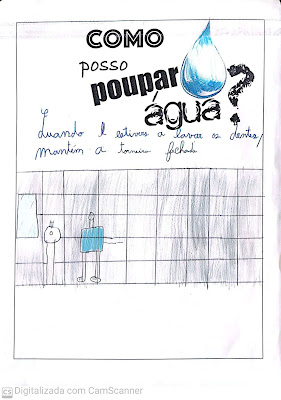 COMO
posso
poupar
água?
Quando estiveres a lavar os dentes,
mantém a torneira fechada
CS Digitalizada com CamScanner